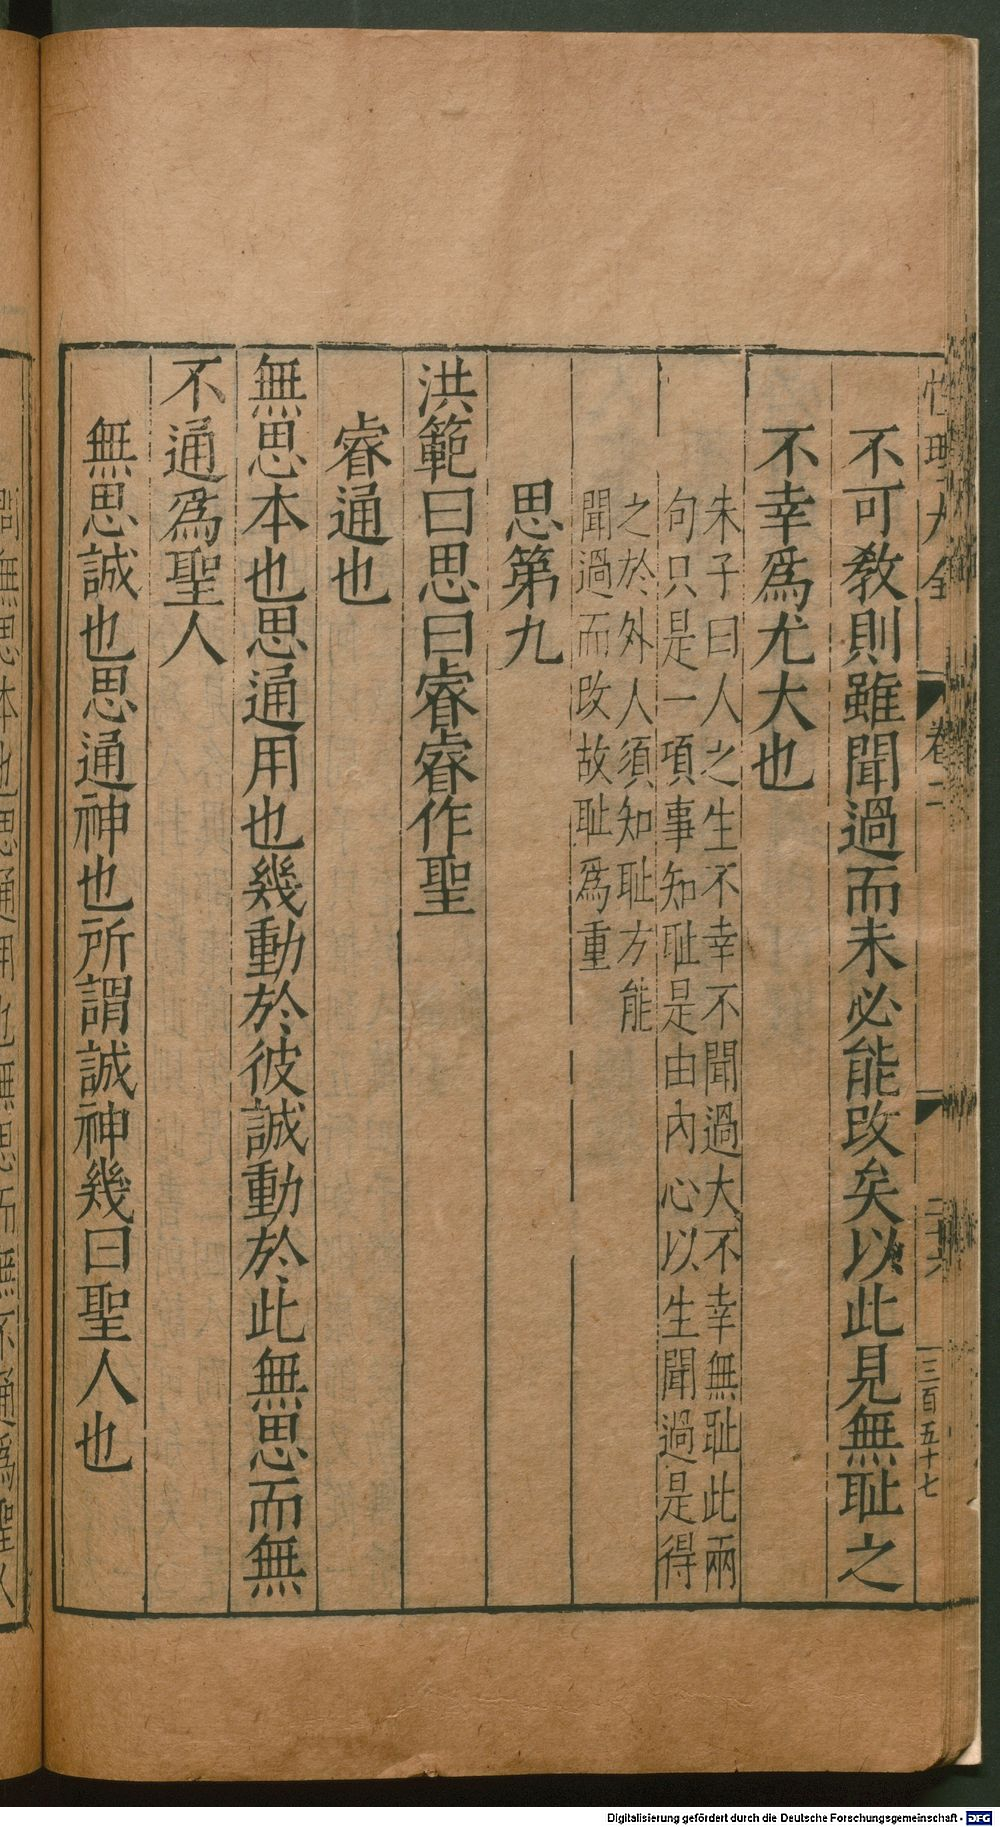 性理大全
卷二
二十六
三百五十七
不可敎則雖聞過而未必能改矣以此見無耻之
不幸爲尤大也
朱子曰人之生不幸不聞過大不幸無耻此兩
句只是一項事知耻是由內心以生聞過是得
之於外人須知耻方能
聞過而改故耻爲重
思第九
洪範曰思曰睿睿作聖
睿通也
無思本也思通用也幾動於彼誠動於此無思而無
不通爲聖人
無思誠也思通神也所謂誠神幾曰聖人也
問無思本也思通用也無思而無不通爲聖人
Digitalisierung gefördert durch die Deutsche Forschungsgemeinschaft - DFG